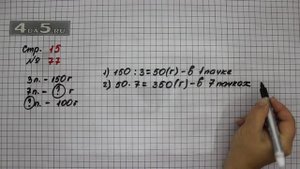 4A5.RU
Стр. 15
№ 77
3п. – 150г
7п. – ? г
?п. – 100г
1) 150 : 3 = 50 (г) – в 1 пачке
2) 50 · 7 = 350 (г) – в 7 пачках